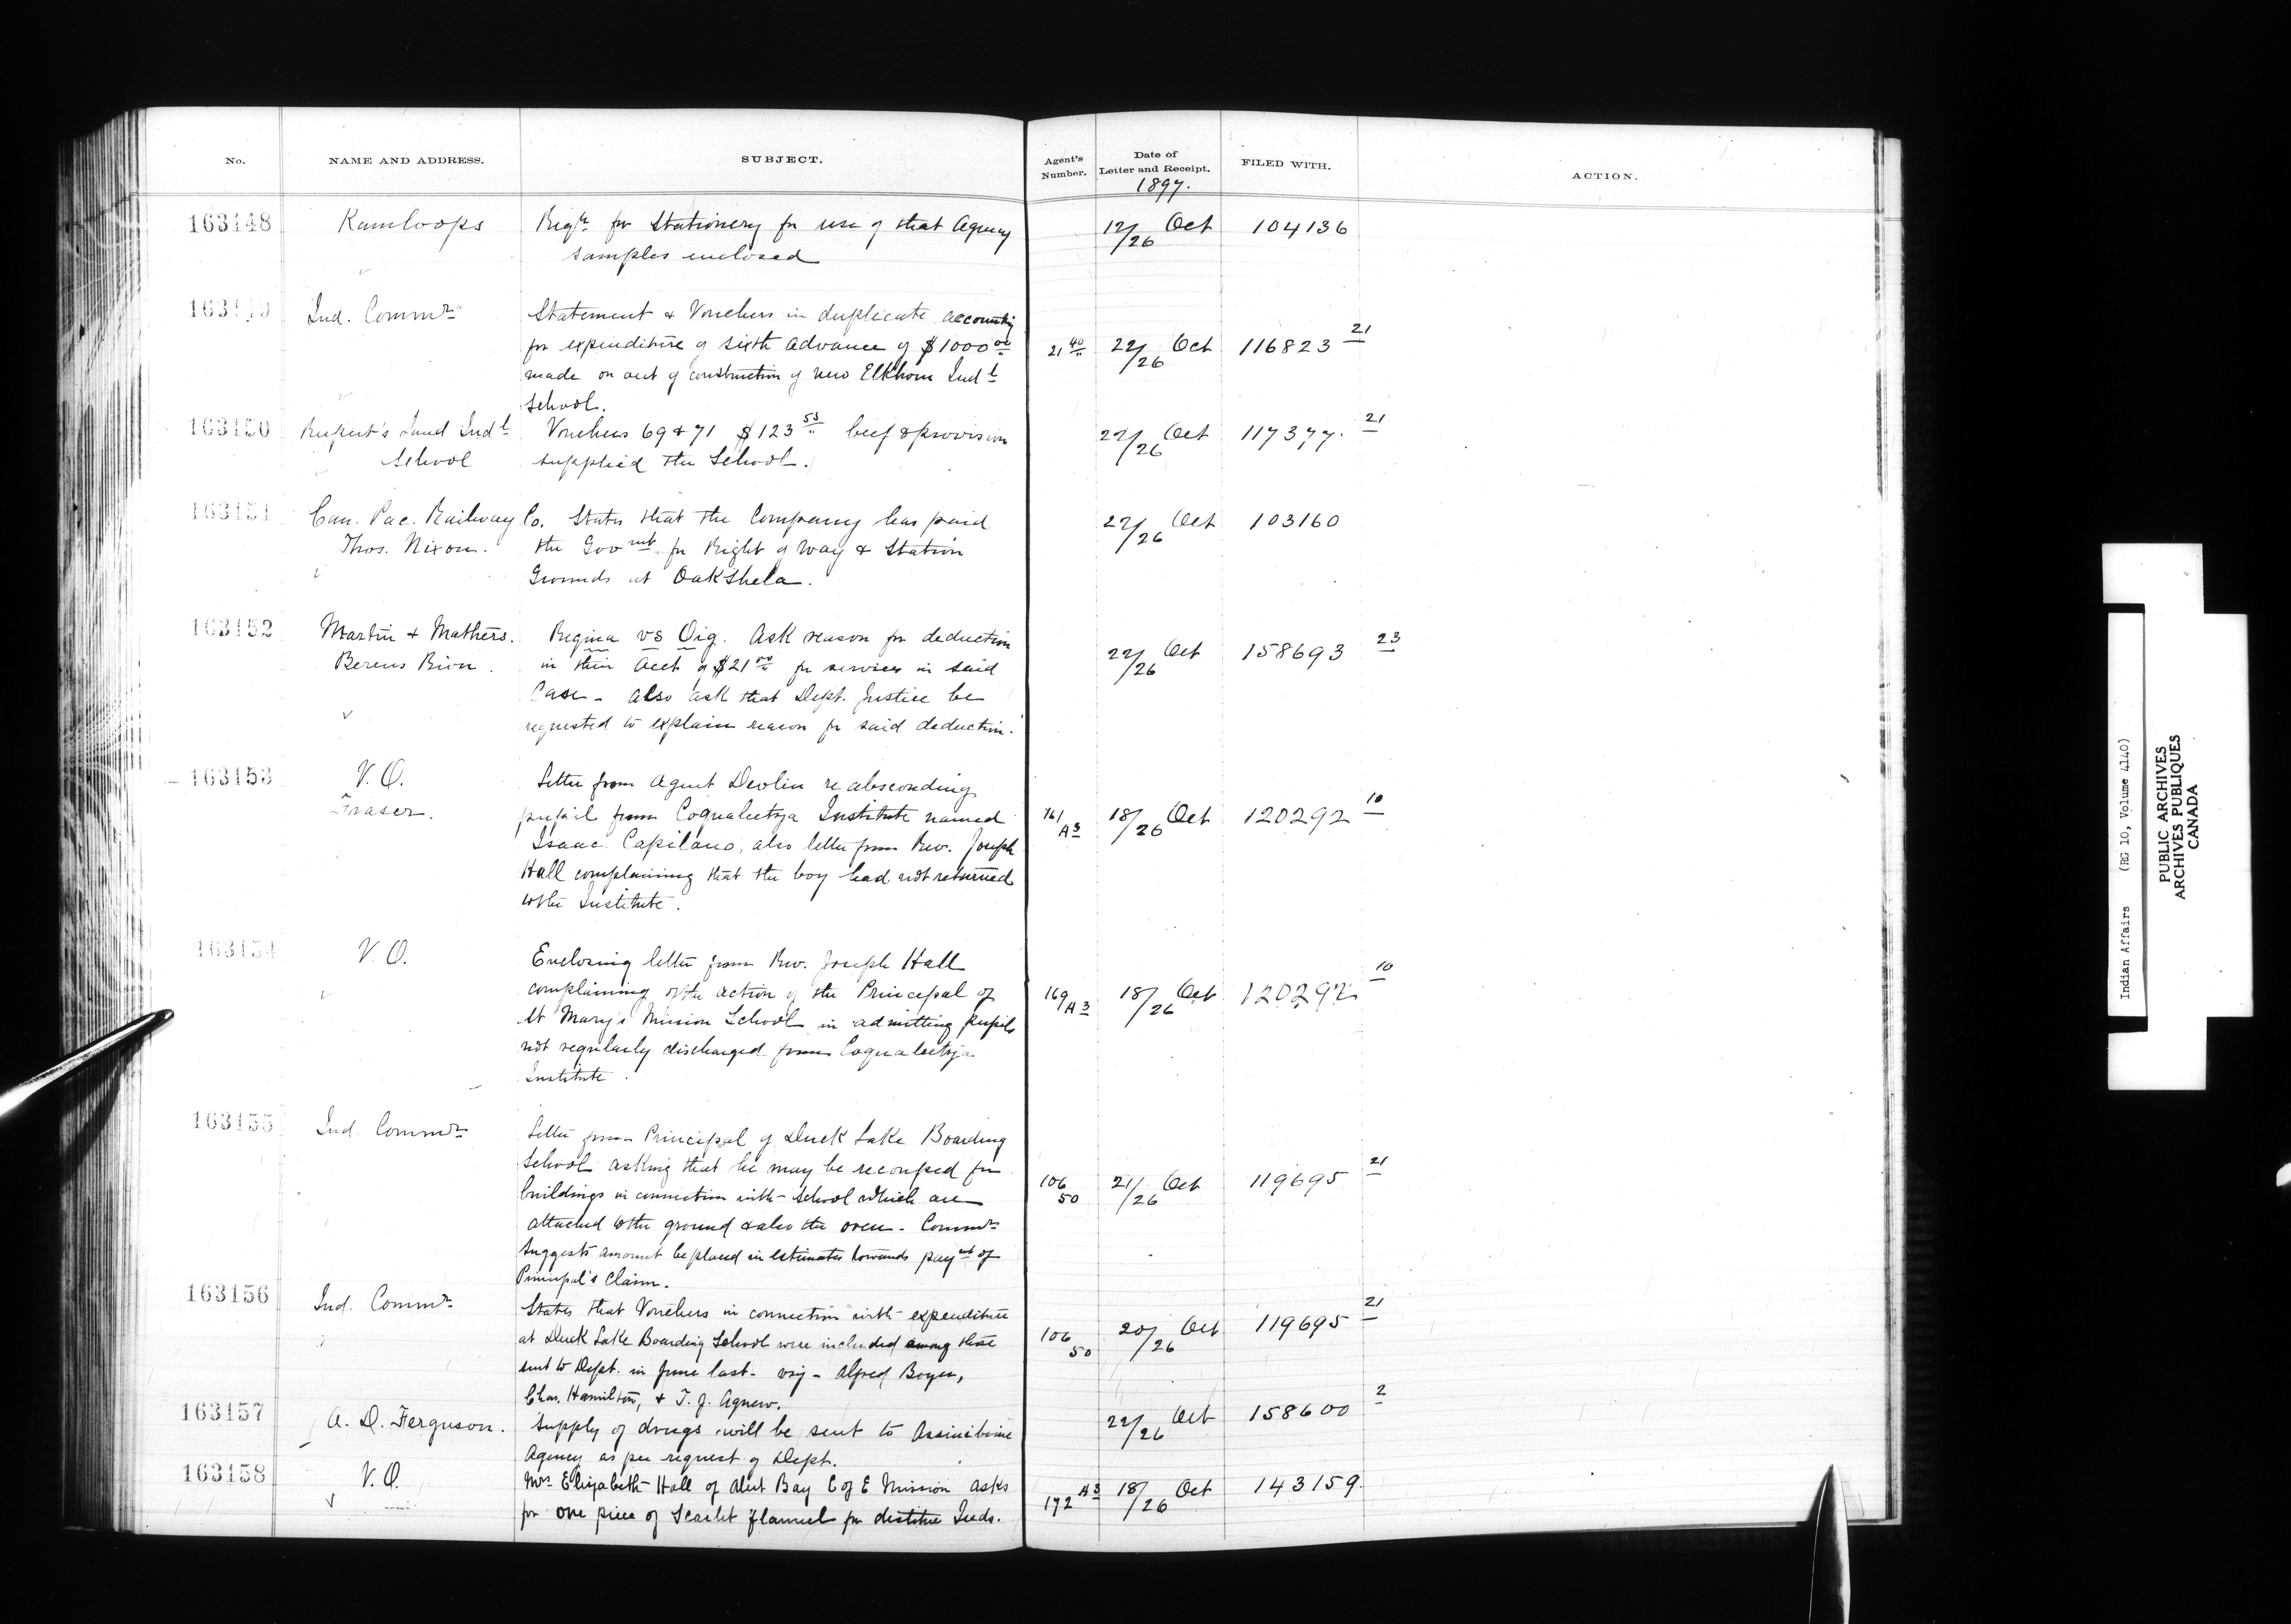 No. NAME AND ADDRESS. SUBJECT. Agent's Number. Date of Letter and Receipt. FILED WITH. ACTION.
1897.
163148 Kamloops Reqn for Stationery for use of that Agency 12/26 Oct 104136
samples enclosed
163149 Ind. Commr Statement & Vouchers in duplicate accounting
for expenditure of sixth advance of $1000 00 21 40 22/26 Oct 116823 21
made on acct of construction of new Elkhorn Indl
School.
163150 Rupert's Land Indl Vouchers 69 & 71 $123 55 beef & provision 22/26 Oct 117377. 21
School supplied the School.
163151 Can. Pac. Railway Co. States that the Company has paid 22/26 Oct 103160
Thos. Nixon. the Govmt for Right of way & Station
Grounds at Oakshela.
163152 Martin & Mathers. Regina vs Oig. Ask reason for deduction 22/26 Oct 158693 23
Berens River. in their acct of $21 00 for services in said
Case - also ask that Dept. Justice be
requested to explain reason for said deduction.
163153 V.O. Letter from Agent Devlin re absconding
Fraser. pupil from Coqualeetza Institute named 161 A3 18/26 Oct 120292 10
Isaac Capilano, also letter from Rev. Joseph
Hall complaining that the boy had not returned
to the Institute.
163154 V.O. Enclosing letter from Rev. Joseph Hall
complaining of the action of the Principal of 169 A3 18/26 Oct 120292 10
St Mary's Mission School in admitting pupils
not regularly discharged from Coqualeetza
Institute.
163155 Ind. Commr Letter from Principal of Duck Lake Boarding
School asking that he may be recouped for
buildings in connection with School which are 106 50 21/26 Oct 119695 21
attached to the ground & also the oven - Commr
suggests amount be placed in estimates towards paymt of
Principal's claim.
163156 Ind. Commr States that Vouchers in connection with expenditure
at Duck Lake Boarding School were included among those 106 50 20/26 Oct 119695 21
sent to Dept. in June last - viz - Alfred Boyer,
Chas. Hamilton, & T. J. Agnew.
163157 A. D. Ferguson. Supply of drugs will be sent to Assiniboine 22/26 Oct 158600 2
Agency as per request of Dept.
163158 V.O. Mrs Elizabeth Hall of Alert Bay C of E Mission asks 172 A3 18/26 Oct 143159.
for one piece of Scarlet flannel for destitue Inds.
Indian Affairs (RG 10, Volume 4140)
PUBLIC ARCHIVES
ARCHIVES PUBLIQUES
CANADA